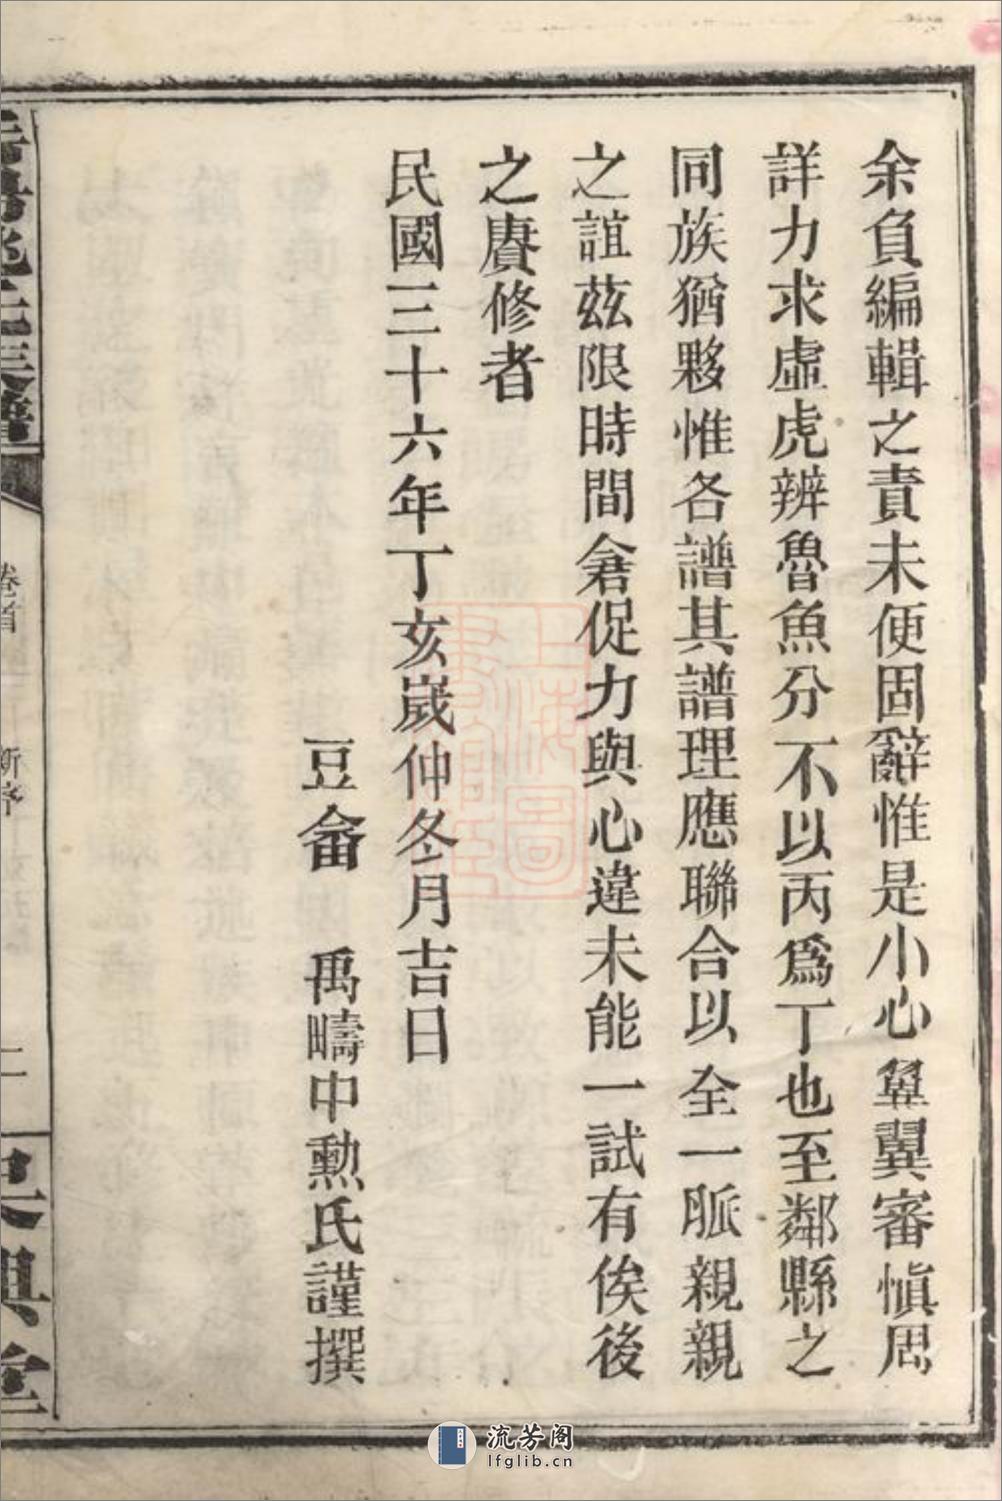 余負編輯之責未便固辭惟是小心翼翼審愼周
詳力求虛虎辨魯魚分不以丙爲丁也至鄰縣之
同族猶夥惟各譜其譜理應聯合以全一脈親親
之誼茲限時間倉促力與心違未能一試有俟後
之賡修者
民國三十六年丁亥歲仲冬月吉日
豆畲 禹疇中勲氏謹撰
卷首
新序
二
上海圖
書館藏
流芳阁
lfglib.cn